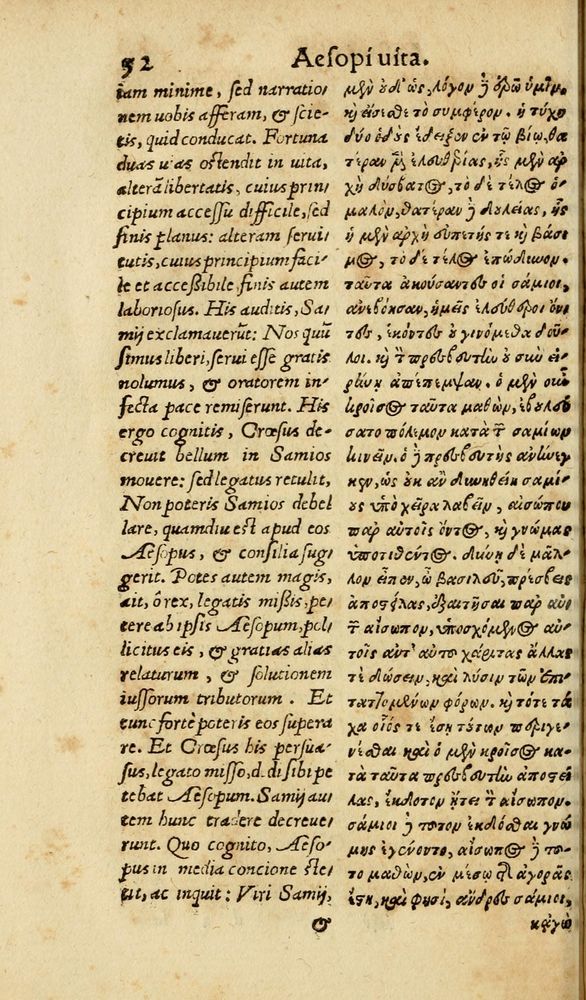 52 Aesopi uita.
iam minime, sed narratio
nem uobis afferam, & scie-
tis, quid conducat. Fortuna
duas uias ostendit in uita,
alterã libertatis, cuius prin
cipium accessu difficile, sed
finis planus: alteram serui
tutis, cuius principium faci-
le et accessibile, finis autem
laboriosus. His auditis, Sa
mij exclamauerũt: Nos quũ
simus liberi, serui esse gratis
nolumus, & oratorem in-
fecta pace remiserunt. His
ergo cognitis, Crœsus de-
creuit bellum in Samios
mouere: sed legatus retulit,
Non poteris Samios debel
lare, quamdiu est apud eos
Aesopus, & consilia sug
gerit. Potes autem magis,
ait, ô rex, legatis missis, pe-
tere ab ipsis Aesopum, pol
licitus eis, & gratias alias
relaturum, & solutionem
iussorum tributorum. Et
tunc fortè poteris eos supera
re. Et Crœsus his persua-
sus, legato misso, dedi sibi pe
tebat Aesopum. Samij au-
tem hunc tradere decreue-
runt. Quo cognito, Aeso-
pus in media concione ste-
tit, ac inquit: Viri Samij,
&
μὲν οὐδ' ὡς, λόγον δὲ ἐρῶ ὑμῖν,
καὶ εἴσεσθε τὸ συμφέρον. ἡ τύχη
δύο ὁδοὺς ἔδειξεν ἐν τῷ βίῳ, θα
τέραν μὲν ἐλευθερίας, ἧς μὲν ἀρ
χὴ δύσβατος, τὸ δὲ τέλος ὁ
μαλὸν, θατέραν δὲ δουλείας, ἧς
ἡ μὲν ἀρχὴ εὐπετής τε καὶ βάσι
μος, τὸ δὲ τέλος ἐπώδυνον.
ταῦτα ἀκούσαντες οἱ σάμιοι,
ἀνεβόησαν, ἡμεῖς ἐλεύθεροι ὄν
τες, ἑκόντες οὐ γινόμεθα δοῦ
λοι. καὶ τὸν πρεσβευτὴν οὐ σὺν εἰ
ρήνῃ ἀπέπεμψαν. ὁ μὲν οὖν
κροῖσος ταῦτα μαθὼν, ἐβουλεύ
σατο πόλεμον κατὰ τῶν σαμίων
κινεῖν. ὁ δὲ πρεσβευτὴς ἀνήνεγ
κεν, ὡς οὐκ ἂν δυνηθείη σαμί
ους ὑπὸ χεῖρα λαβεῖν, αἰσώπου
παρ' αὐτοῖς ὄντος, καὶ γνώμας
ὑποτιθέντος. δύνῃ δὲ μᾶλ
λον εἶπεν, ὦ βασιλεῦ, πρέσβεις
ἀποστείλας, ἐξαιτῆσαι παρ' αὐ
τῶν αἴσωπον, ὑποσχόμενος αὐ
τοῖς ἀντ' αὐτοῦ χάριτας ἄλλας
τε δώσειν, καὶ λύσιν τῶν ἐπι
ταττομένων φόρων. καὶ τότε τά
χα οἷός τε ἔσῃ τούτων περιγε
νέσθαι καὶ ὁ μὲν κροῖσος κα
τὰ ταῦτα πρεσβευτὴν ἀποστεί
λας, ἔκδοτον ᾔτει τὸν αἴσωπον.
σάμιοι δὲ τοῦτον ἐκδόσθαι γνώ
μης ἐγένοντο, αἴσωπος δὲ τοῦ
το μαθὼν, ἐν μέσῳ τῆς ἀγορᾶς
ἔστη, καὶ φησὶ, ἄνδρες σάμιοι,
κἀγὼ